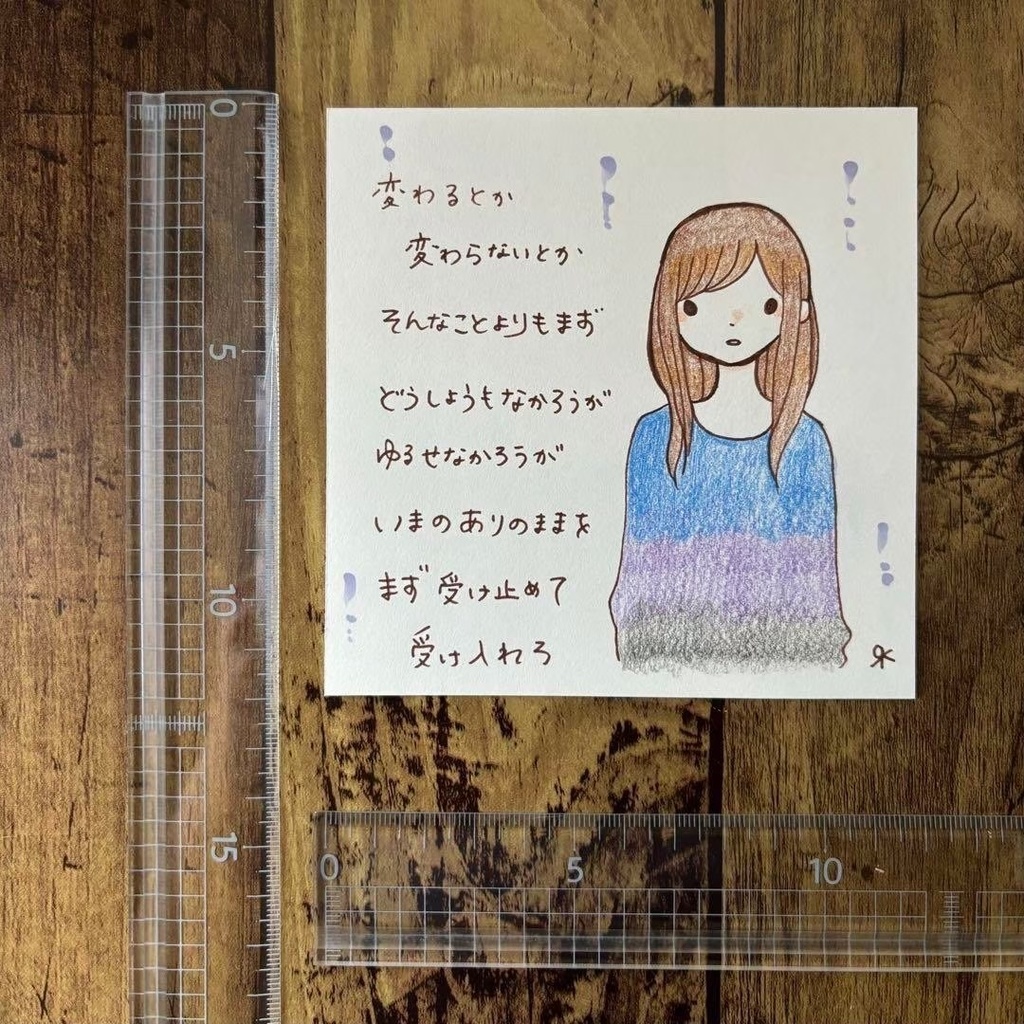 変わるとか
変わらないとか
そんなことよりもまず
どうしようもなかろうが
ゆるせなかろうが
いまのありのままを
まず受け止めて
受け入れろ
0
5
10
15
0
5
10